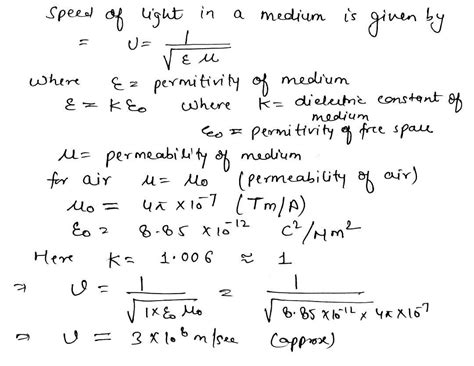 Speed of light in a medium is given by
= υ = 1/√(ε μ)
where ε = permitivity of medium
ε = K ε₀ where K = dielectric constant of
medium
ε₀ = permitivity of free space
μ = permeability of medium
for air μ = μ₀ (permeability of air)
μ₀ = 4π × 10⁻⁷ (Tm/A)
ε₀ = 8.85 × 10⁻¹² C²/Nm²
Here K = 1.006 ≈ 1
⇒ υ = 1/√(1 × ε₀ μ₀) = 1/√(8.85 × 10⁻¹² × 4π × 10⁻⁷)
⇒ υ = 3 × 10⁸ m/sec (approx)